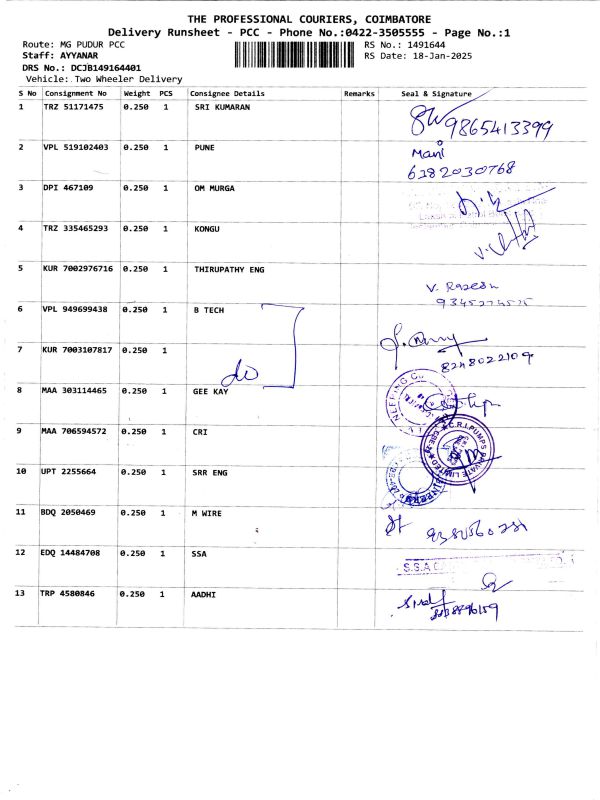 THE PROFESSIONAL COURIERS, COIMBATORE
Delivery Runsheet - PCC - Phone No.:0422-3505555 - Page No.:1
Route: MG PUDUR PCC RS No.: 1491644
Staff: AYYANAR RS Date: 18-Jan-2025
DRS No.: DCJB149164401
Vehicle: Two Wheeler Delivery
S No Consignment No Weight PCS Consignee Details Remarks Seal & Signature
1 TRZ 51171475 0.250 1 SRI KUMARAN 9865413399
2 VPL 519102403 0.250 1 PUNE Mani
6382030768
3 DPI 467109 0.250 1 OM MURGA
4 TRZ 335465293 0.250 1 KONGU
5 KUR 7002976716 0.250 1 THIRUPATHY ENG V. Rajesh
6 VPL 949699438 0.250 1 B TECH
7 KUR 7003107817 0.250 1 do 8248022109
8 MAA 303114465 0.250 1 GEE KAY
9 MAA 706594572 0.250 1 CRI C.R.I.PUMPS PRIVATE LIMITED
10 UPT 2255664 0.250 1 SRR ENG
11 BDQ 2050469 0.250 1 M WIRE
12 EDQ 14484708 0.250 1 SSA S.S.A
13 TRP 4580846 0.250 1 AADHI